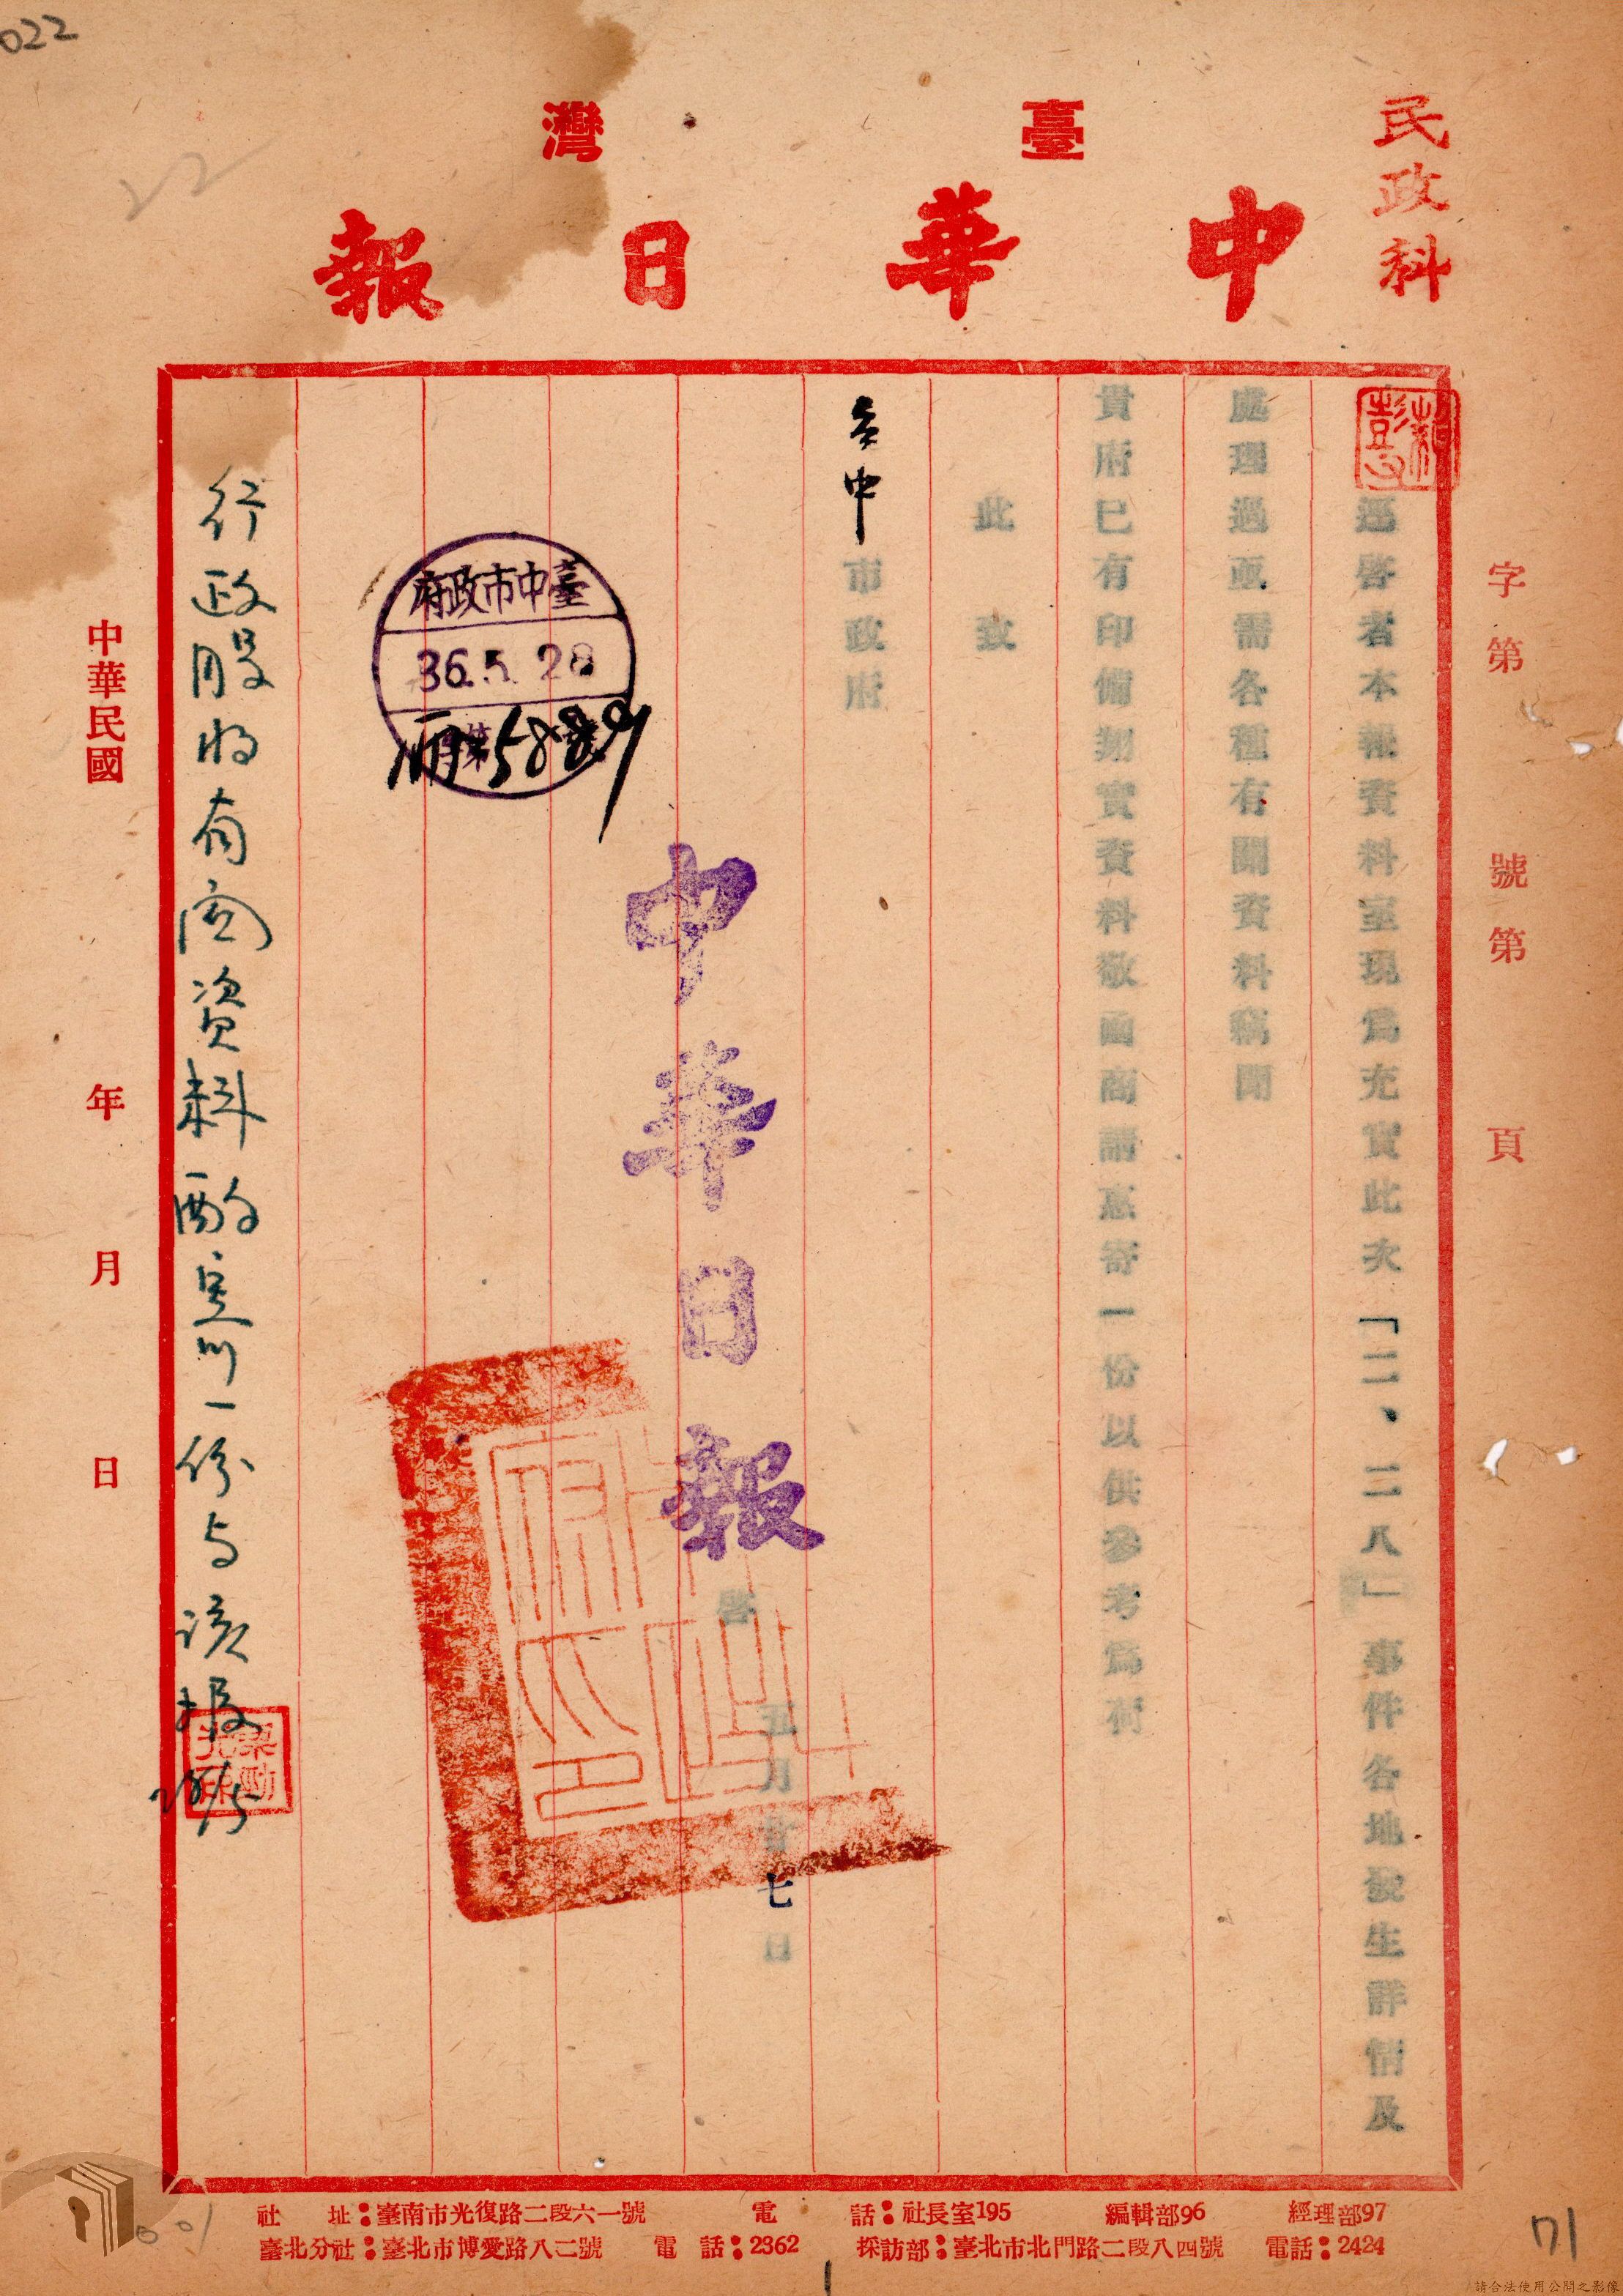 022
22
民政科
臺灣
中華日報
字第 號第 頁
逕啓者本報資料室現爲充實此次「二、二八」事件各地發生詳情及
處理過並需各種有關資料竊聞
貴府已有印備翔實資料敬函商請惠寄一份以供參考爲荷
此致
台中市政府
中華日報 啓
五月廿七日
臺中市政府
36.5.28
5889
行政股收有關資料酌量印一份与该报
28/5
中華民國 年 月 日
社址:臺南市光復路二段六一號 電話:社長室195 編輯部96 經理部97
臺北分社:臺北市博愛路八二號 電話:2362 採訪部:臺北市北門路二段八四號 電話:2424
001
1
71
請合法使用公開之影像